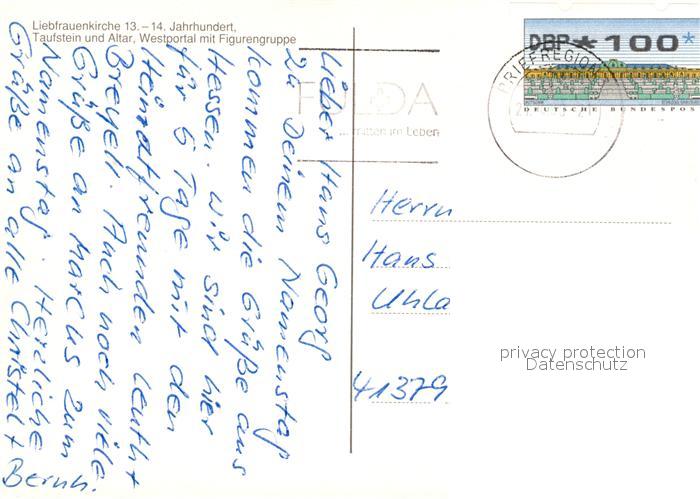 Liebfrauenkirche 13.–14. Jahrhundert,
Taufstein und Altar, Westportal mit Figurengruppe
DBP * 100*
BRIEFREGION
DEUTSCHE BUNDESPOS
FULDA
... mitten im Leben
Lieber Hans Georg
Zu Deinem Namenstag
kommen die Grüße aus
Hessen. Wir sind hier
für 5 Tage mit den
Heimatfreunden Leuth +
Breyell. Auch noch viele
Grüße an Marcus zum
Namenstag. Herzliche
Grüße an alle Christel +
Bernh.
Herrn
Hans
Uhla
41379
privacy protection
Datenschutz